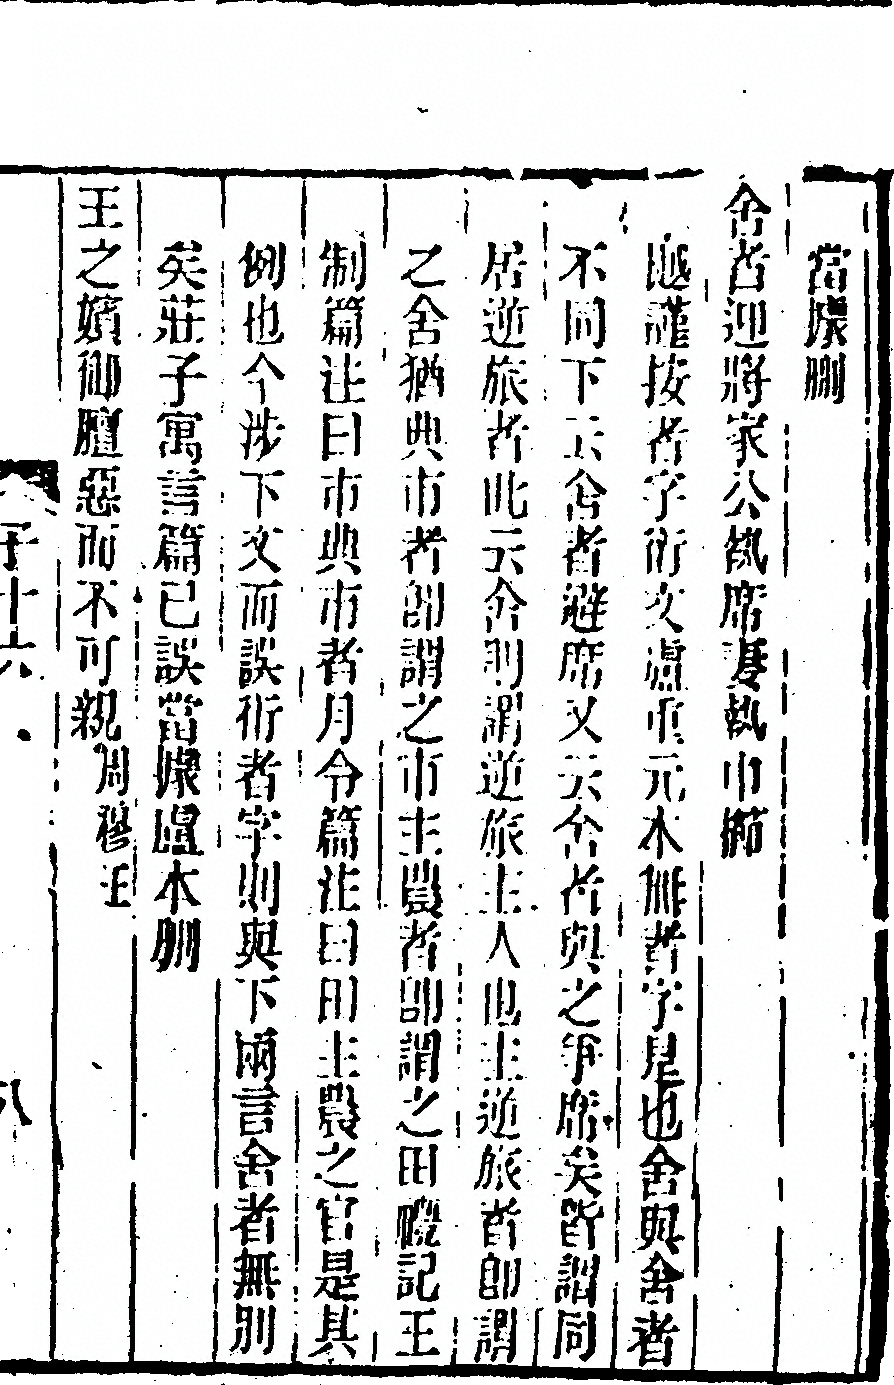 當據刪
舍者迎將家公執席妻執巾櫛
樾謹按者字衍文盧重元本無者字是也舍與舍者
不同下云舍者避席又云舍者與之爭席矣皆謂同
居逆旅者此云舍則謂逆旅主人也主逆旅者卽謂
之舍猶典市者卽謂之市主農者卽謂之田禮記王
制篇注曰市典市者月令篇注曰田主農之官是其
例也今涉下文而誤衍者字則與下兩言舍者無別
矣莊子寓言篇已誤當據盧本刪
王之嬪御膻惡而不可親周穆王
子十六
八